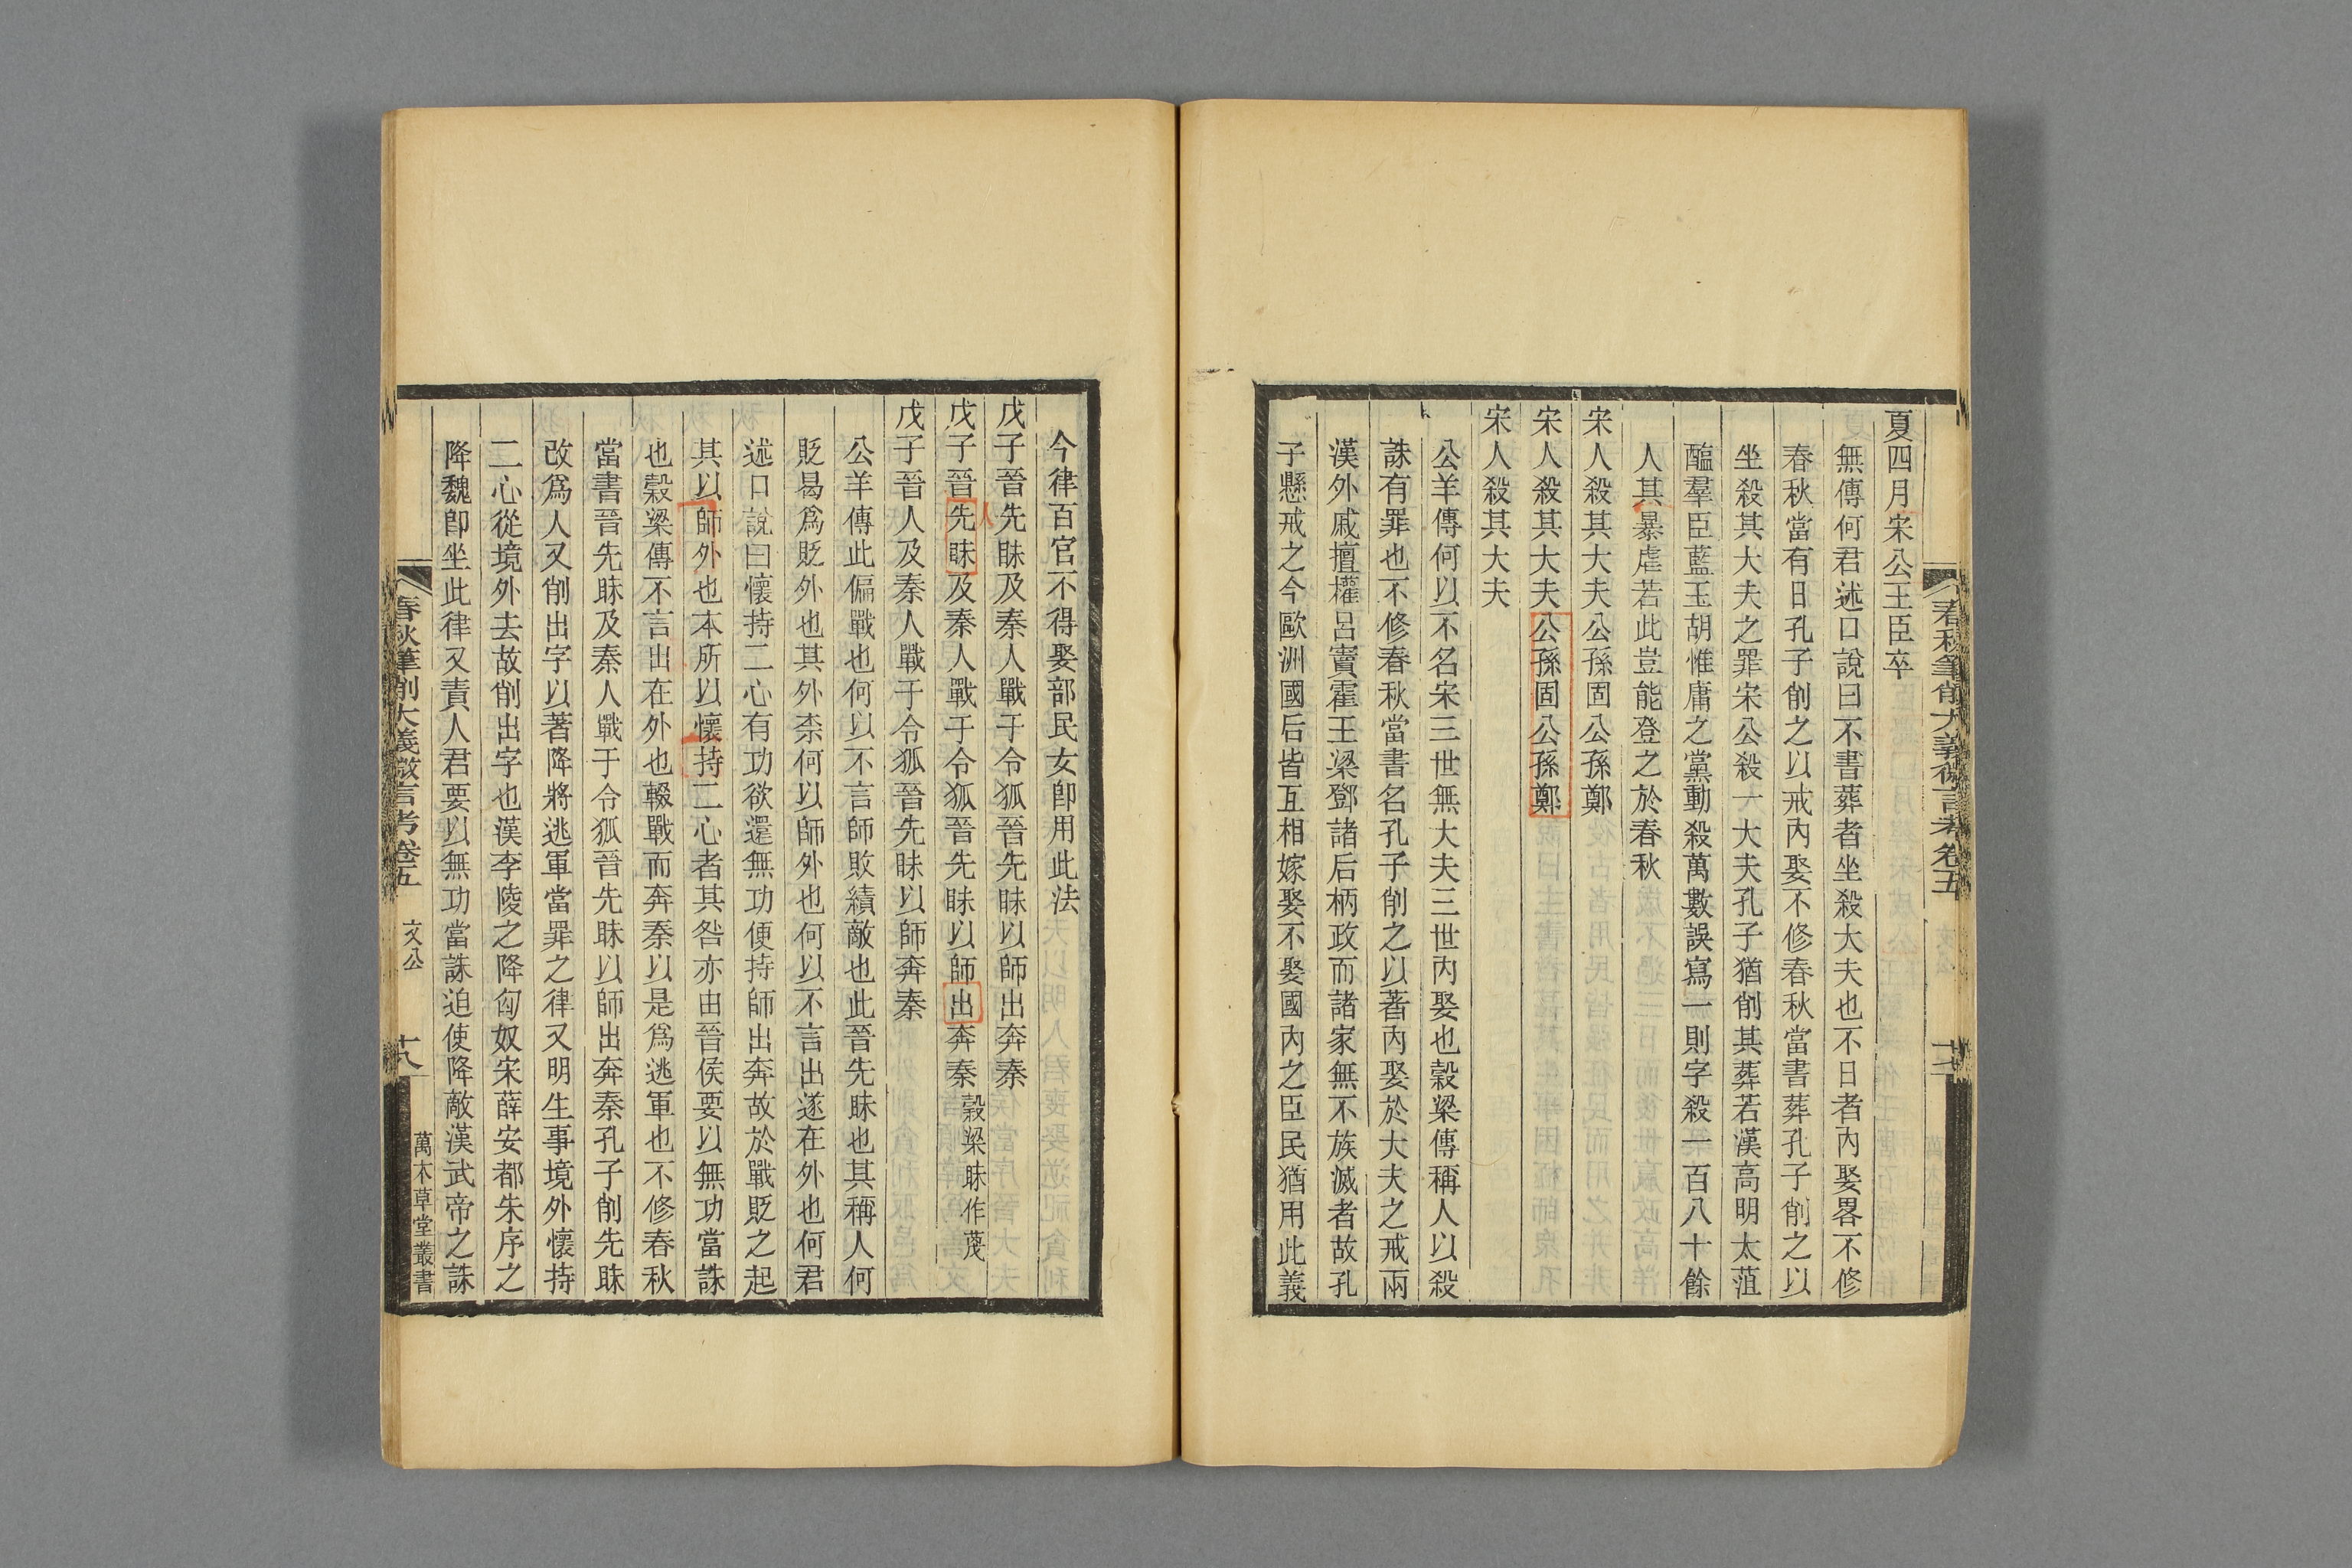 春秋筆削大義微言考卷五
夏四月宋公王臣卒
無傳何君述口說曰不書葬者坐殺大夫也不日者內娶畧不修
春秋當有日孔子削之以戒內娶不修春秋當書葬孔子削之以
坐殺其大夫之罪宋公殺一大夫孔子猶削其葬若漢高明太葅
醢羣臣藍玉胡惟庸之黨動殺萬數誤寫一則字殺一百八十餘
人其暴虐若此豈能登之於春秋
宋人殺其大夫公孫固公孫鄭
宋人殺其大夫公孫固公孫鄭
宋人殺其大夫
公羊傳何以不名宋三世無大夫三世內娶也穀梁傳稱人以殺
誅有罪也不修春秋當書名孔子削之以著內娶於大夫之戒兩
漢外戚擅權呂竇霍王梁鄧諸后柄政而諸家無不族滅者故孔
子懸戒之今歐洲國后皆互相嫁娶不娶國內之臣民猶用此義
今律百官不得娶部民女卽用此法
戊子晉先眛及秦人戰于令狐晉先眛以師出奔秦
戊子晉先眛及秦人戰于令狐晉先眛以師出奔秦 穀梁眛作蔑
戊子晉人及秦人戰于令狐晉先眛以師奔秦
公羊傳此偏戰也何以不言師敗績敵也此晉先眛也其稱人何
貶曷爲貶外也其外柰何以師外也何以不言出遂在外也何君
述口說曰懷持二心有功欲還無功便持師出奔故於戰貶之起
其以師外也本所以懷持二心者其咎亦由晉侯要以無功當誅
也穀梁傳不言出在外也輟戰而奔秦以是爲逃軍也不修春秋
當書晉先眛及秦人戰于令狐晉先眛以師出奔秦孔子削先眛
改爲人又削出字以著降將逃軍當罪之律又明生事境外懷持
二心從境外去故削出字也漢李陵之降匈奴宋薛安都朱序之
降魏卽坐此律又責人君要以無功當誅迫使降敵漢武帝之誅
春秋筆削大義微言考卷五 文公 十八 萬木草堂叢書